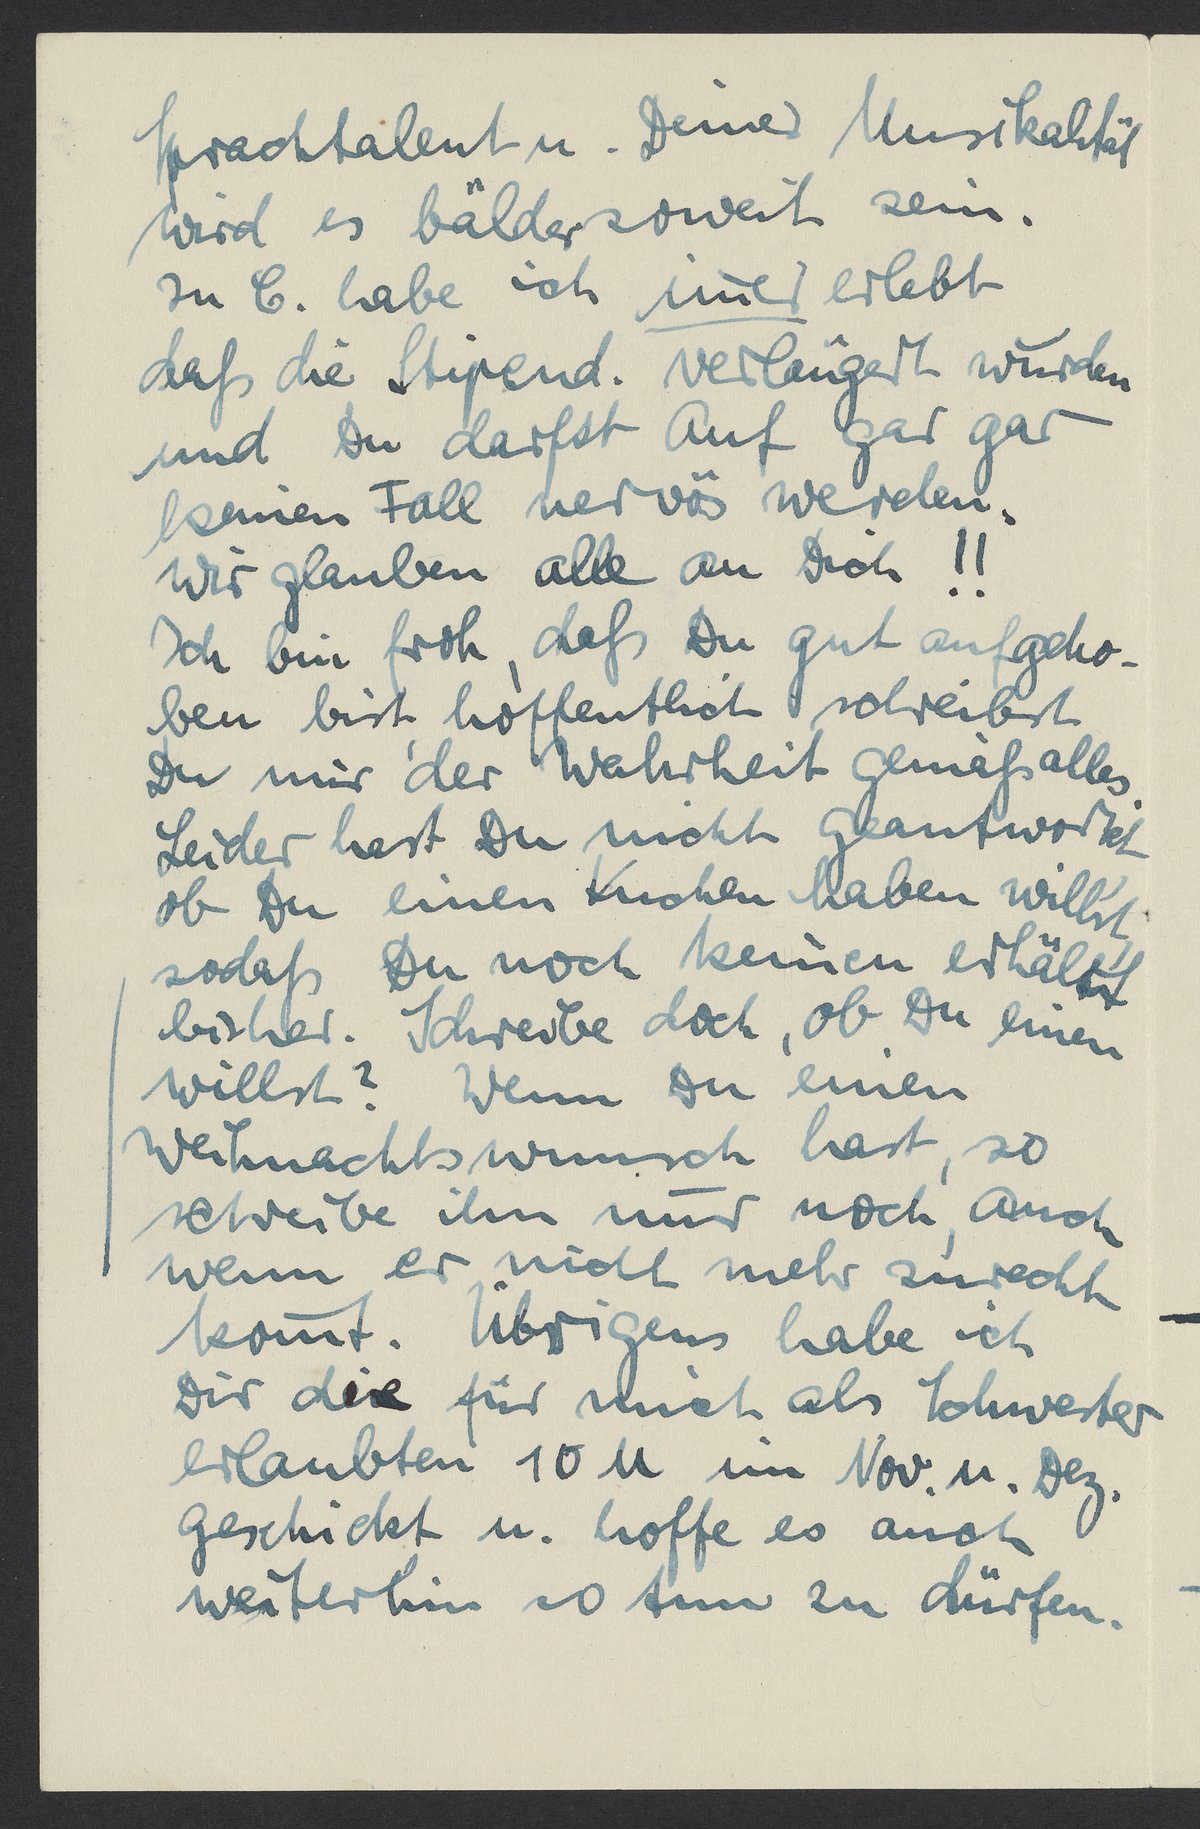 Sprachtalent u. Deiner Musikalität
wird es bälder soweit sein.
In C. habe ich im̅er erlebt
daß die Stipend. verlängert wurden
und Du darfst auf gar gar
keinen Fall nervös werden.
Wir glauben alle an Dich !!
Ich bin froh, daß Du gut aufgeho-
ben bist, hoffentlich schreibst
Du mir der Wahrheit gemäß alles.
Leider hast Du nicht geantwortet
ob Du einen Kuchen haben willst,
sodaß Du noch keinen erhältst
bisher. Schreibe doch, ob Du einen
willst? Wenn Du einen
Weihnachtswunsch hast, so
schreibe ihn nur noch, auch
wenn er nicht mehr zurecht
kom̅t. Übrigens habe ich
Dir die für mich als Schwester
erlaubten 10 M im Nov. u. Dez.
geschickt u. hoffe es auch
weiterhin so tun zu dürfen.